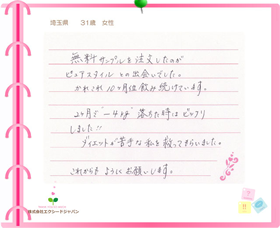 埼玉県 31歳 女性
無料サンプルを注文したのが
ピュアスタイルとの出会いでした。
かれこれ10ヶ月位飲み続けています。
2ヶ月で-4kg 落ちた時はビックリ
しました!!
ダイエットが苦手な私を救ってもらいました。
これからもよろしくお願いします。
株式会社エクシードジャパン